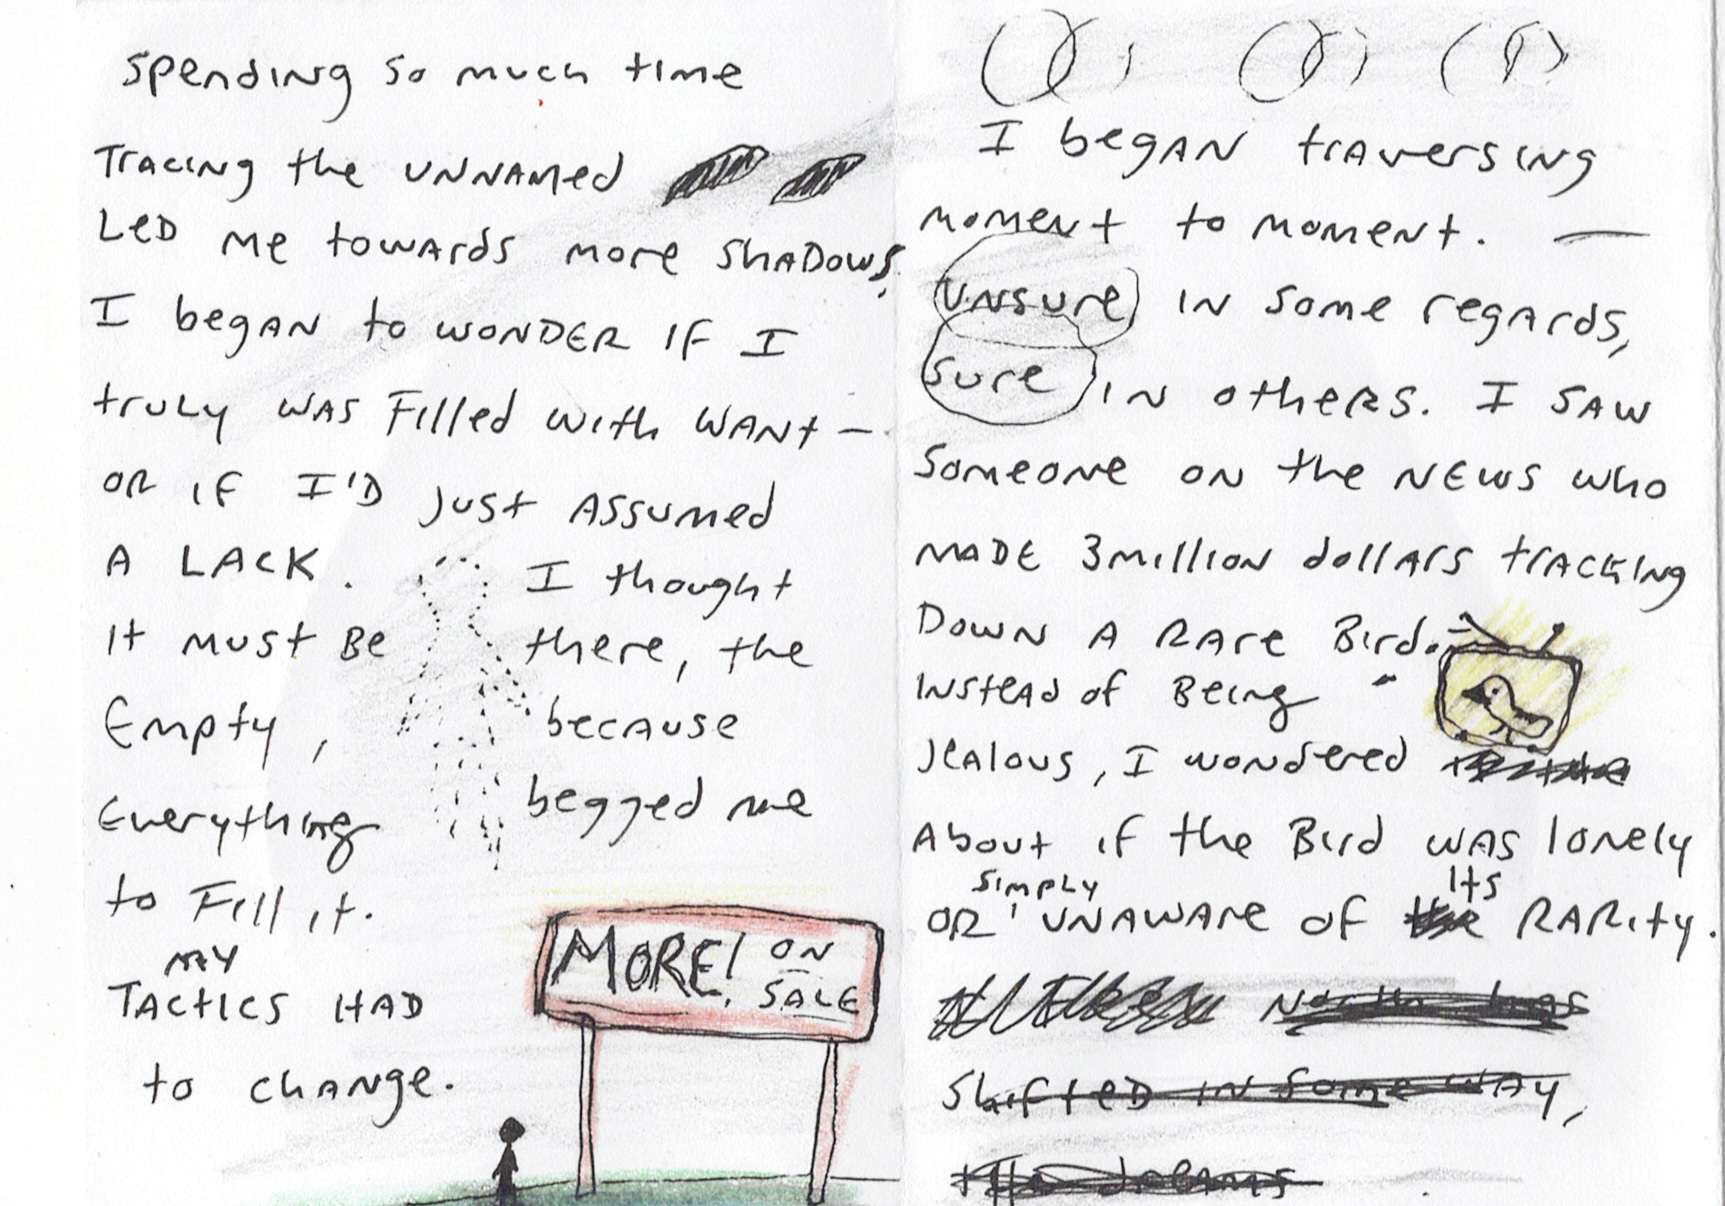 Spending so much time
Tracing the unnamed
Led me towards more shadows,
I began to wonder if I
truly was filled with want —
or if I'd just assumed
A lack.
It must be
Empty,
Everything
to fill it.
I thought
there, the
because
begged me
my
Tactics had
to change.
MORE! ON
SALE
I began traversing
moment to moment. —
unsure in some regards,
sure in others. I saw
someone on the news who
made 3 million dollars tracking
down a rare bird.
Instead of being
jealous, I wondered
about if the bird was lonely
simply its
or unaware of rarity.
shifted in some way,
dreams